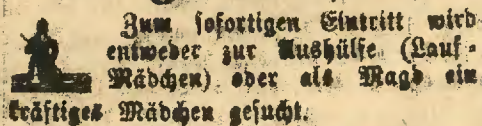 Zum sofortigen Eintritt wird
entweder zur Aushülfe (Lauf-
Mädchen) oder als Magd ein
kräftiges Mädchen gesucht.